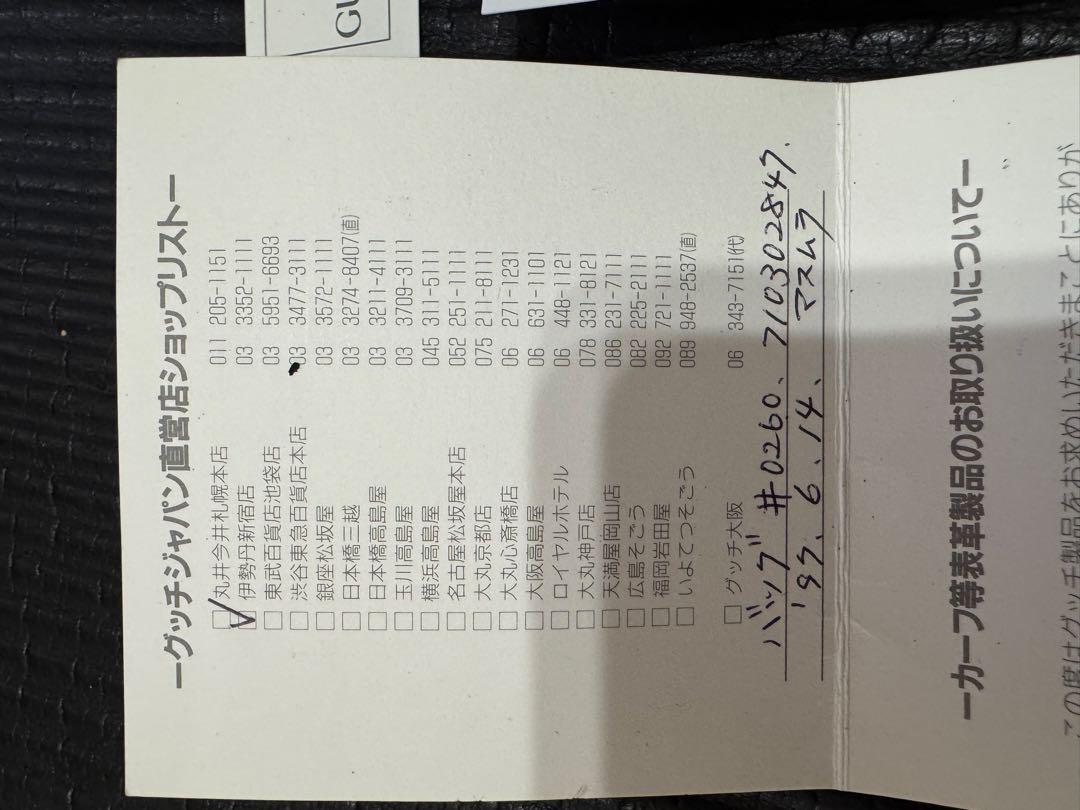 GU
ーグッチジャパン直営店ショップリストー
□丸井今井札幌本店 011 205-1151
☑伊勢丹新宿店 03 3352-1111
□東武百貨店池袋店 03 5951-6693
□渋谷東急百貨店本店 03 3477-3111
□銀座松坂屋 03 3572-1111
□日本橋三越 03 3274-8407(直)
□日本橋高島屋 03 3211-4111
□玉川高島屋 03 3709-3111
□横浜高島屋 045 311-5111
□名古屋松坂屋本店 052 251-1111
□大丸京都店 075 211-8111
□大丸心斎橋店 06 271-1231
□大阪高島屋 06 631-1101
□ロイヤルホテル 06 448-1121
□大丸神戸店 078 331-8121
□天満屋岡山店 086 231-7111
□広島そごう 082 225-2111
□福岡岩田屋 092 721-1111
□いよてつそごう 089 948-2537(直)
□グッチ大阪 06 343-7151(代)
バッグ #0260、710302847.
'97. 6. 14、 マスムラ
ーカーフ等表革製品のお取り扱いについてー
この度はグッチ製品をお求めいただきまことにありが